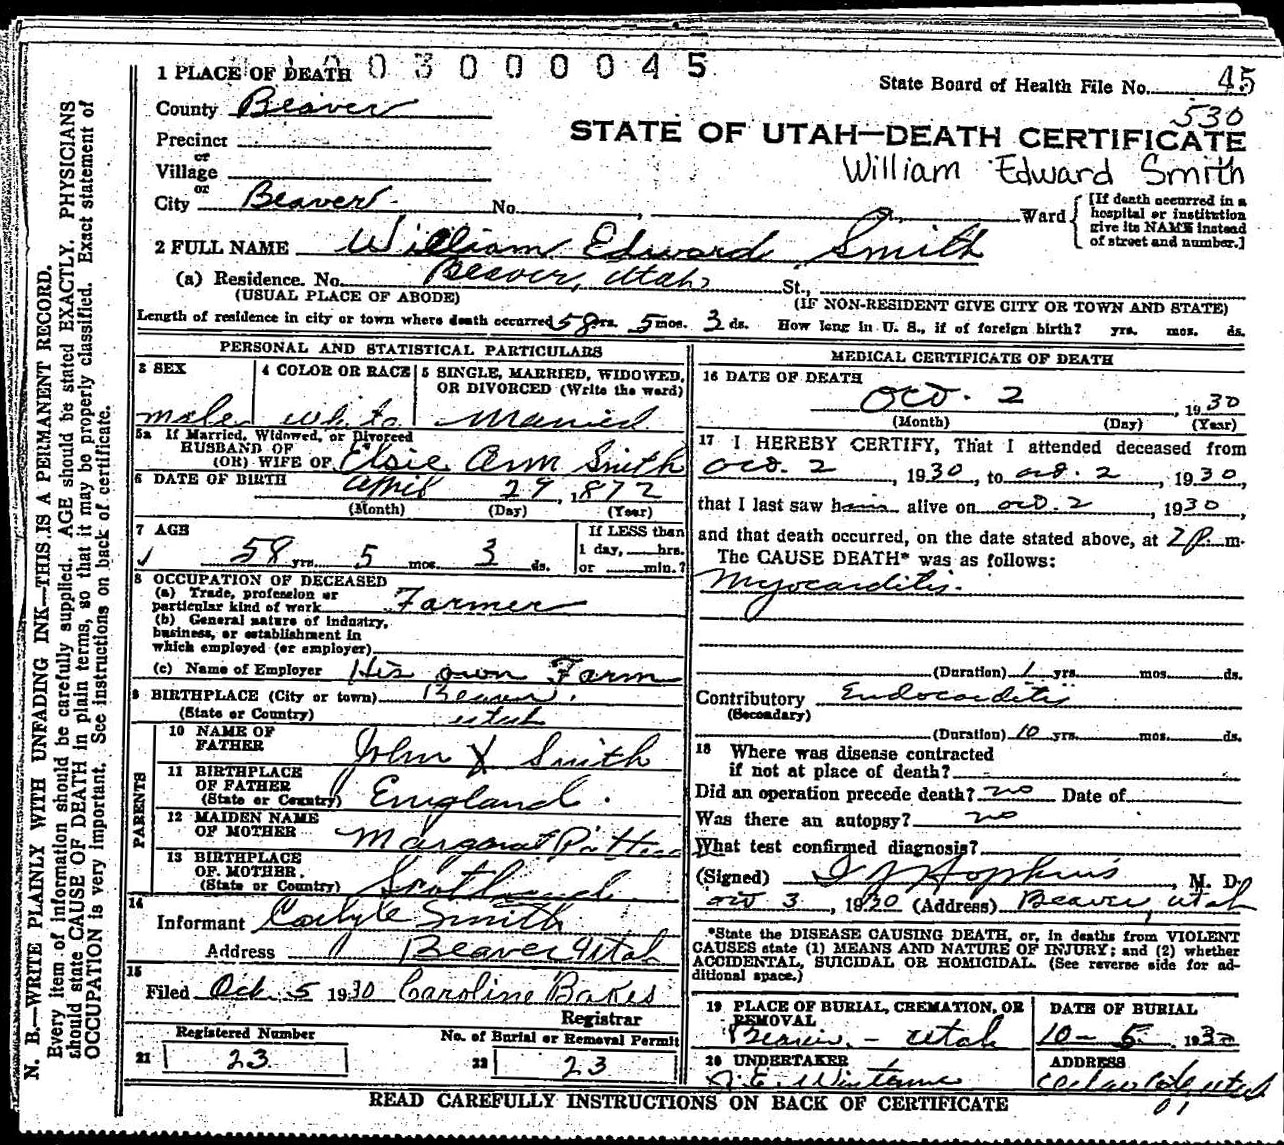 0 3 0 0 0 0 4 5
1 PLACE OF DEATH
State Board of Health File No. 45
County Beaver
530
Precinct
STATE OF UTAH—DEATH CERTIFICATE
or
Village
William Edward Smith
or
City Beaver No. , Ward
[If death occurred in a hospital or institution give its NAME instead of street and number.]
2 FULL NAME William Edward Smith
(a) Residence. No. Beaver, Utah St.,
(USUAL PLACE OF ABODE) (IF NON-RESIDENT GIVE CITY OR TOWN AND STATE)
Length of residence in city or town where death occurred 58 yrs. 5 mos. 3 ds. How long in U. S., if of foreign birth? yrs. mos. ds.
PERSONAL AND STATISTICAL PARTICULARS
3 SEX
male
4 COLOR OR RACE
white
5 SINGLE, MARRIED, WIDOWED, OR DIVORCED (Write the word)
Married
5a If Married, Widowed, or Divorced
HUSBAND OF
(OR) WIFE OF Elsie Ann Smith
6 DATE OF BIRTH April 29, 1872
(Month) (Day) (Year)
7 AGE
58 yrs. 5 mos. 3 ds.
If LESS than
1 day, hrs.
or min.?
8 OCCUPATION OF DECEASED
(a) Trade, profession or
particular kind of work Farmer
(b) General nature of industry,
business, or establishment in
which employed (or employer)
(c) Name of Employer His own Farm
9 BIRTHPLACE (City or town) Beaver,
(State or Country) Utah
PARENTS
10 NAME OF
FATHER John X Smith
11 BIRTHPLACE
OF FATHER
(State or Country) England.
12 MAIDEN NAME
OF MOTHER Margaret
13 BIRTHPLACE
OF MOTHER.
(State or Country) Scotland.
14
Informant Carlyle Smith
Address Beaver Utah
15
Filed Oct. 5 1930 Caroline Bakes
Registrar
Registered Number
21 23
No. of Burial or Removal Permit
22 23
MEDICAL CERTIFICATE OF DEATH
16 DATE OF DEATH
Oct. 2, 1930
(Month) (Day) (Year)
17 I HEREBY CERTIFY, That I attended deceased from
Oct. 2, 1930, to Oct. 2, 1930,
that I last saw him alive on Oct. 2, 1930,
and that death occurred, on the date stated above, at 2 p. m.
The CAUSE DEATH* was as follows:
Myocarditis.
(Duration) 1 yrs. mos. ds.
Contributory Endocarditis
(Secondary)
(Duration) 10 yrs. mos. ds.
18 Where was disease contracted
if not at place of death?
Did an operation precede death? no Date of
Was there an autopsy? no
What test confirmed diagnosis?
(Signed) Hopkins, M. D.
Oct 3, 1930 (Address) Beaver, Utah
*State the DISEASE CAUSING DEATH, or, in deaths from VIOLENT
CAUSES state (1) MEANS AND NATURE OF INJURY; and (2) whether
ACCIDENTAL, SUICIDAL OR HOMICIDAL. (See reverse side for ad-
ditional space.)
19 PLACE OF BURIAL, CREMATION, OR
REMOVAL
Beaver, - Utah
DATE OF BURIAL
10-5 1930
20 UNDERTAKER
ADDRESS
Utah
01
READ CAREFULLY INSTRUCTIONS ON BACK OF CERTIFICATE
N. B.—WRITE PLAINLY WITH UNFADING INK—THIS IS A PERMANENT RECORD.
Every item of information should be carefully supplied. AGE should be stated EXACTLY. PHYSICIANS
should state CAUSE OF DEATH in plain terms, so that it may be properly classified. Exact statement of
OCCUPATION is very important. See instructions on back of certificate.